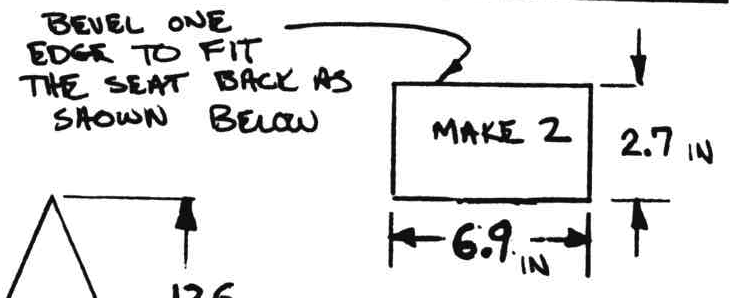 BEVEL ONE
EDGE TO FIT
THE SEAT BACK AS
SHOWN BELOW
MAKE 2
2.7 IN
6.9 IN